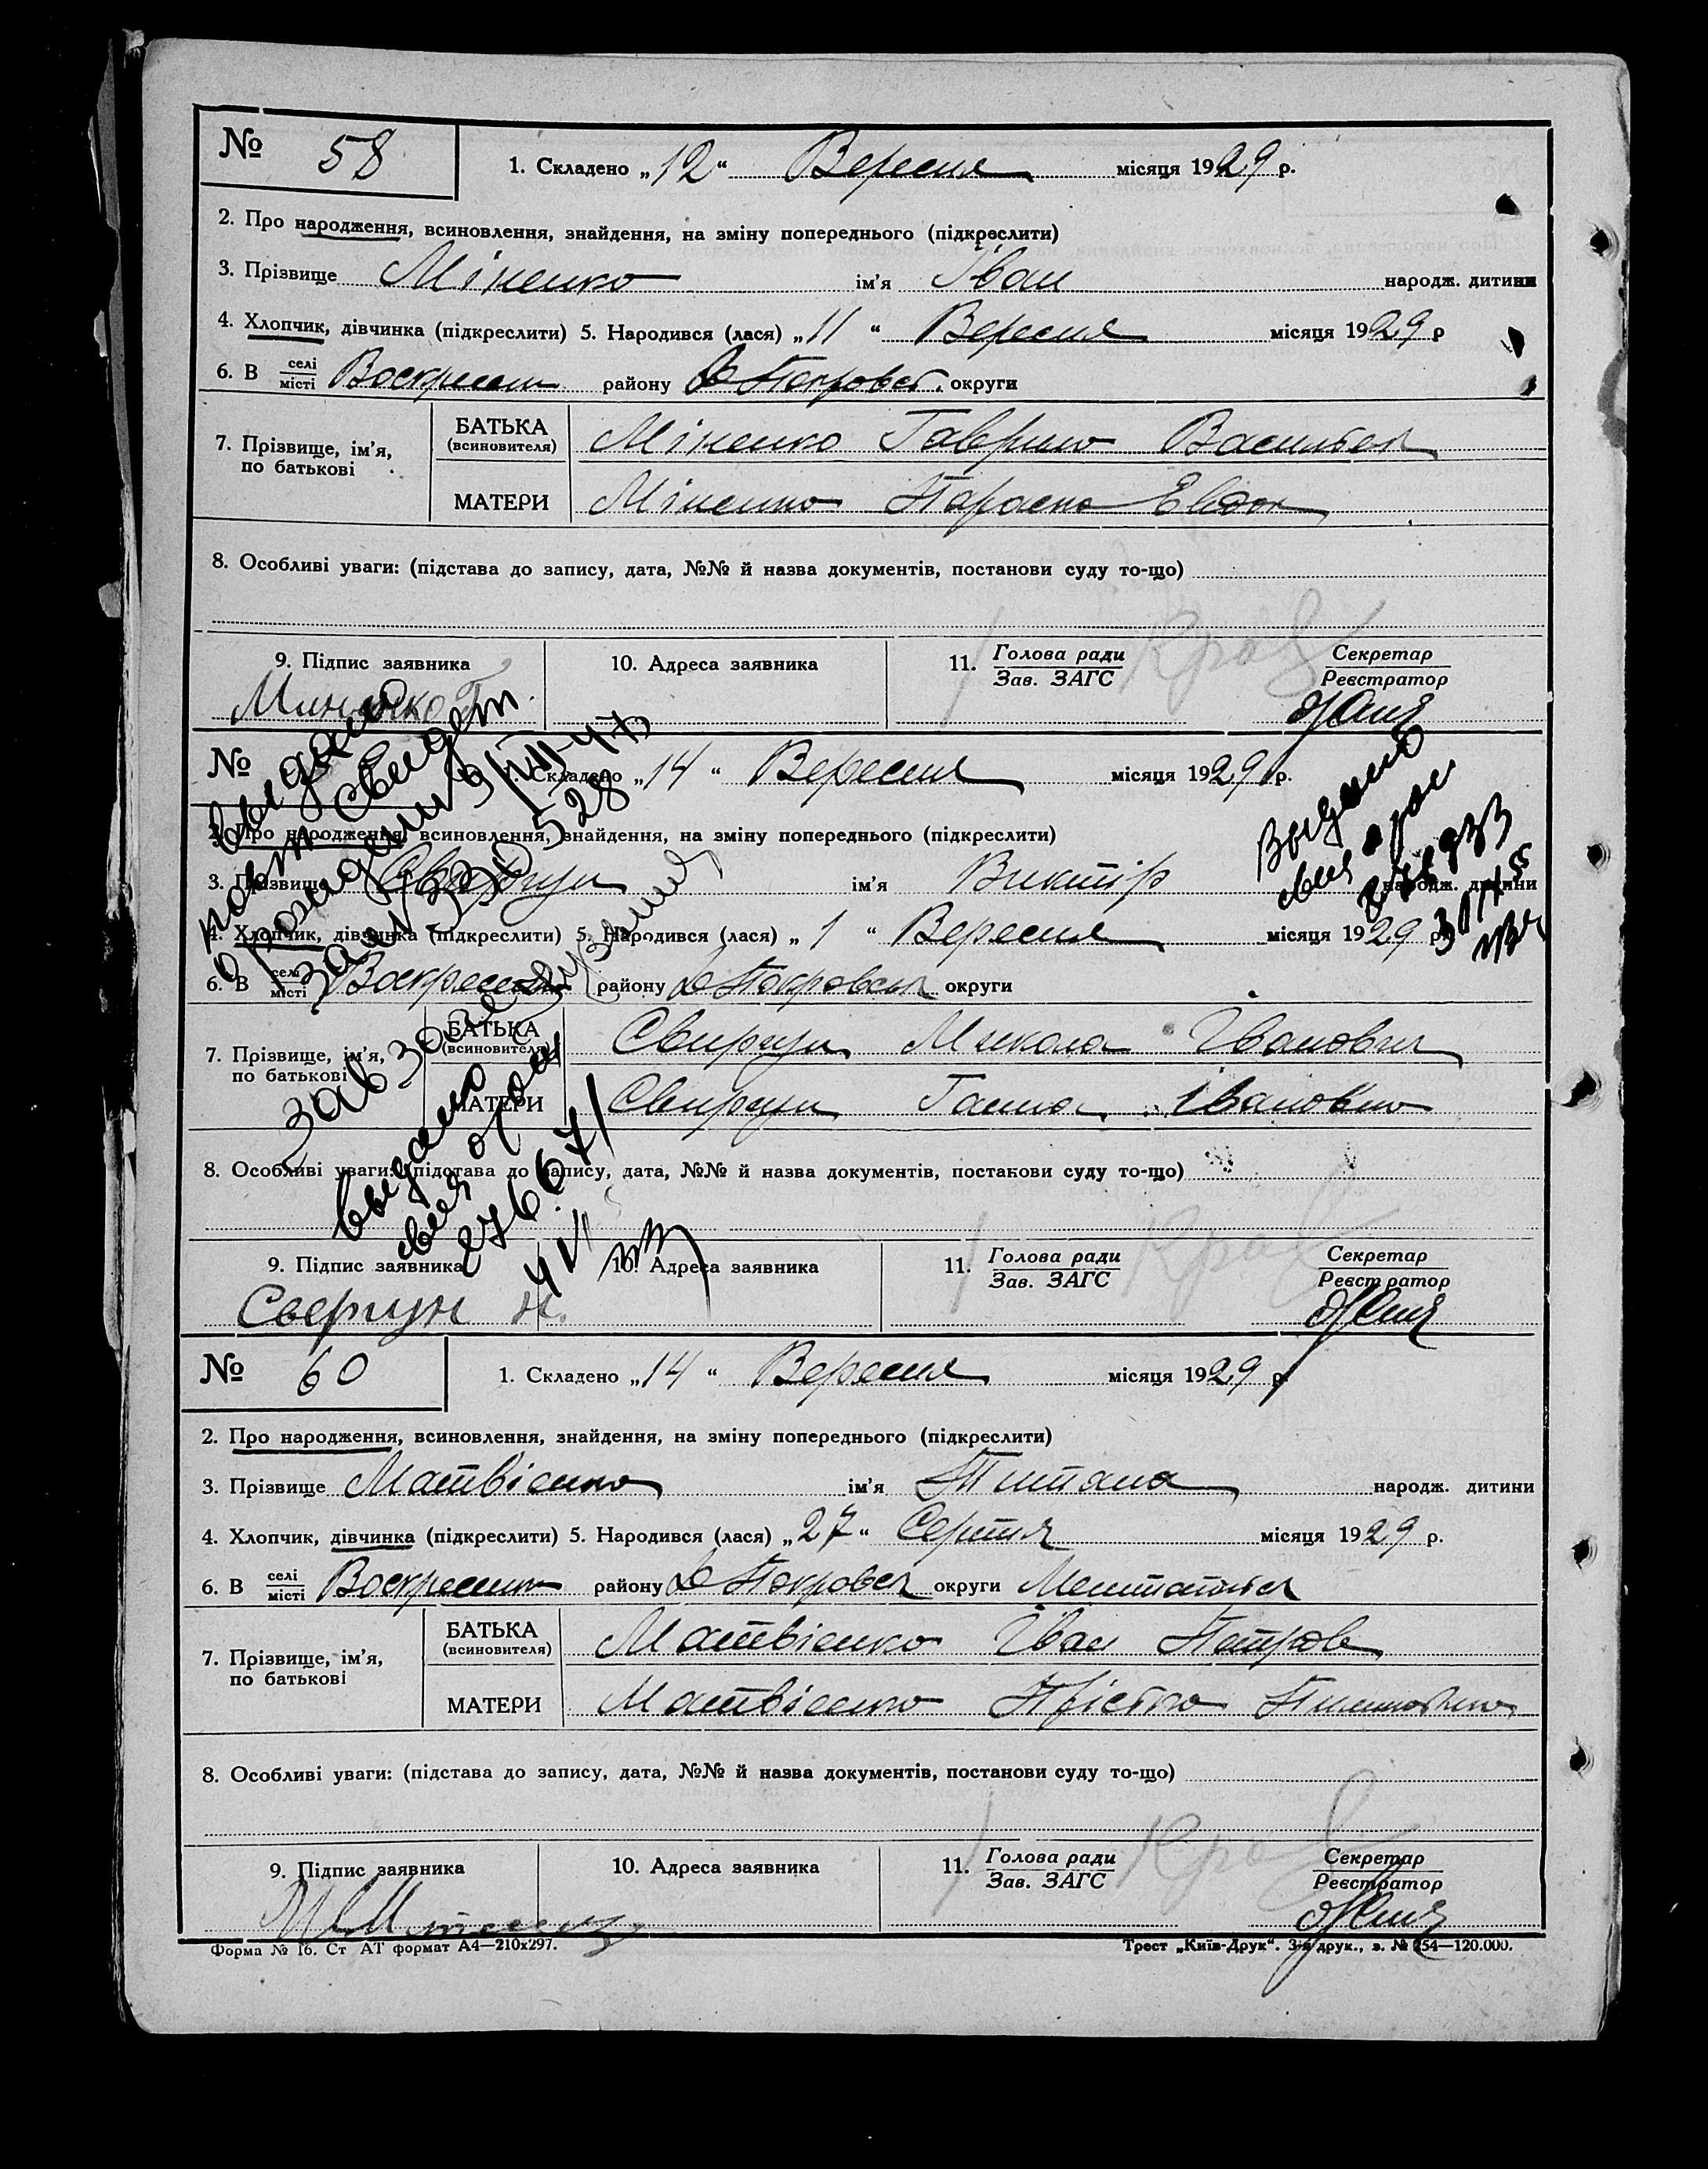 № 58 1. Складено „12“ Вересня місяця 1929 р.
2. Про народження, всиновлення, знайдення, на зміну попереднього (підкреслити)
3. Прізвище Міненко ім'я Іван народж. дитини
4. Хлопчик, дівчинка (підкреслити) 5. Народився (лася) „11“ Вересня місяця 1929 р
6. В селі місті Воскресен району Покровск. округи
7. Прізвище, ім'я, по батькові
БАТЬКА (всиновителя) Міненко Гаврило Васильев
МАТЕРИ Міненко Параска Евдок
8. Особливі уваги: (підстава до запису, дата, №№ й назва документів, постанови суду то-що)
9. Підпис заявника 10. Адреса заявника 11. Голова ради Зав. ЗАГС Секретар Реєстратор
Миненко Г.
№ 1. Складено „14“ Вересня місяця 1929 р.
2. Про народження, всиновлення, знайдення, на зміну попереднього (підкреслити)
3. Прізвище Свиргун ім'я Виктір народж. дитини
4. Хлопчик, дівчинка (підкреслити) 5. Народився (лася) „1“ Вересня місяця 1929 р.
6. В селі місті Воскресен району Покровськ округи
7. Прізвище, ім'я, по батькові
БАТЬКА (всиновителя) Свиргун Микола Іванович
МАТЕРИ Свиргун Ганна Івановно
8. Особливі уваги: (підстава до запису, дата, №№ й назва документів, постанови суду то-що)
9. Підпис заявника 10. Адреса заявника 11. Голова ради Зав. ЗАГС Секретар Реєстратор
Свергун Н.
выдано
повт свидет
о рождении
за № 528
выдано
свид о рож
276671
Выдано
свид о рож
№ 60 1. Складено „14“ Вересня місяця 1929 р.
2. Про народження, всиновлення, знайдення, на зміну попереднього (підкреслити)
3. Прізвище Матвієнко ім'я Титяна народж. дитини
4. Хлопчик, дівчинка (підкреслити) 5. Народився (лася) „27“ Серпня місяця 1929 р.
6. В селі місті Воскресенк району Покровск округи
7. Прізвище, ім'я, по батькові
БАТЬКА (всиновителя) Матвієнко Іван Петров
МАТЕРИ Матвієнко
8. Особливі уваги: (підстава до запису, дата, №№ й назва документів, постанови суду то-що)
9. Підпис заявника 10. Адреса заявника 11. Голова ради Зав. ЗАГС Секретар Реєстратор
Форма № 16. Ст АТ формат А4—210х297. Трест „Київ-Друк“. 3-я друк., з. № 254—120.000.